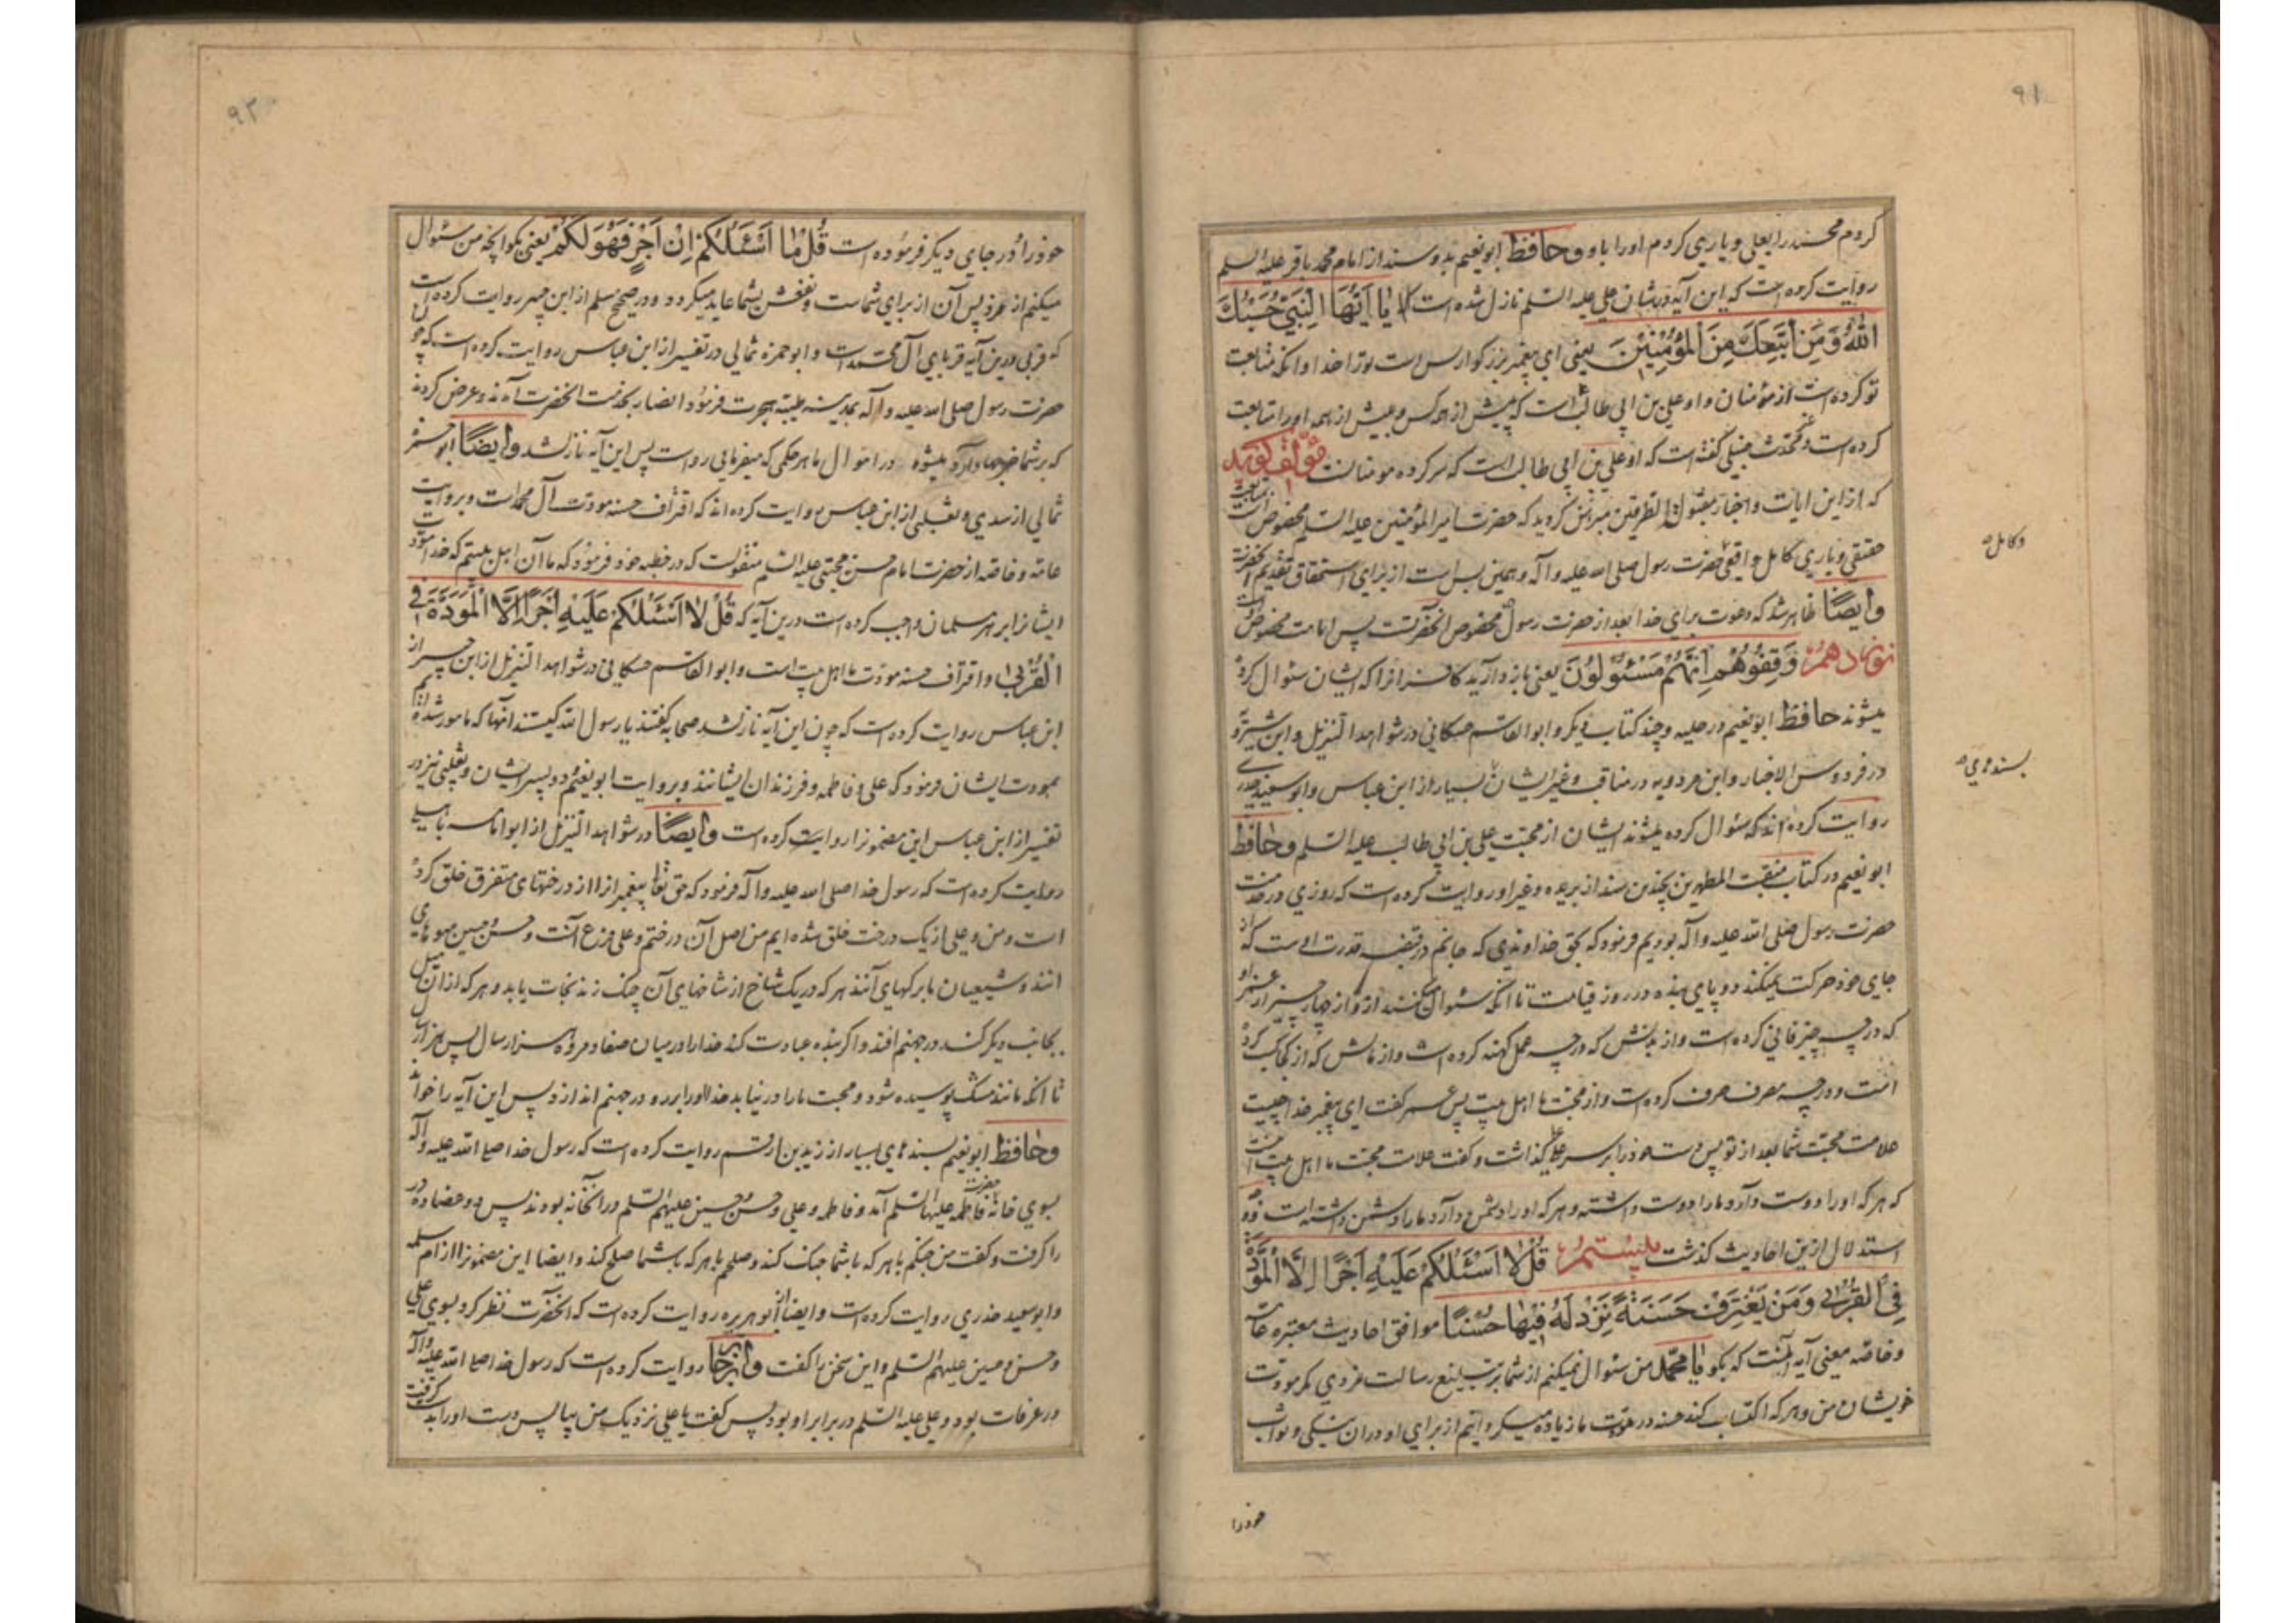 ۹۱
کردم محمد را بعلی و یاری کردم او را باو وحافظ ابو نعیم بدو سند از امام محمد باقر علیه السلم
روایت کرده است که این آیه در شان علی علیه السلم نازل شده است که یَا اَیُّهَا النَّبِیُّ حَسْبُكَ
اللّٰهُ وَمَنِ اتَّبَعَكَ مِنَ الْمُؤْمِنِیْنَ یعنی ای پیغمبر بزرگوار بس است تو را خدا و آنکه متابعت
تو کرده است از مؤمنان و او علی بن ابی طالب است که پیش از همه کس و بیش از همه او را متابعت
کرده است و محدث حنبلی گفته است که او علی بن ابی طالب است که سر کرده مومنانست مؤلف گوید
که از این ایات و اخبار مقبول الطرفین مبرهن گردید که حضرت امیر المؤمنین علیه السلم مخصوص است متابعت
حقیقی و یاری کامل واقعی حضرت رسول صلی الله علیه و آله و همین بس است از برای استحقاق تقدیم آنحضرت
وکامل
وایضاً ظاهر شد که دعوت برای خدا بعد از حضرت رسول مخصوص آنحضرتست پس امامت مخصوص اوست
نوزدهم وَقِفُوْهُمْ اِنَّهُمْ مَسْئُوْلُوْنَ یعنی باز دارید کافران را که ایشان سئوال کرده
میشوند حافظ ابو نعیم در حلیه و چند کتاب دیگر و ابو القاسم حسکانی در شواهد التنزیل و ابن شیرویه
در فردوس الاخبار و ابن مردویه در مناقب و غیر ایشان بسیار از ابن عباس و ابو سعید خدری
بسندهای
روایت کرده اند که سئوال کرده میشوند ایشان از محبت علی بن ابی طالب علیه السلم وحافظ
ابو نعیم در کتاب منقبت المطهرین بچندین سند از بریده و غیر او روایت کرده است که روزی در خدمت
حضرت رسول صلی الله علیه و آله بودیم فرمود که بحق خداوندی که جانم در قبضه قدرت اوست که از
جای خود حرکت نمیکند دو پای بنده در روز قیامت تا آنکه سئوال میکنند از او از چهار چیز از عمر او
که در چه چیز فانی کرده است و از بدنش که در چه عمل کهنه کرده است و از مالش که از کجا کسب کرده
است و در چه مصرف صرف کرده است و از محبت ما اهل بیت پس عمر گفت ای پیغمبر خدا چیست
علامت محبت شما بعد از تو پس دست خود را بر سر علی گذاشت و گفت علامت محبت ما اهل بیت محبت اینست
که هر که او را دوست دارد ما را دوست داشته و هر که او را دشمن دارد ما را دشمن داشته است و وجه
استدلال ازین احادیث گذشت بیستم قُلْ لَا اَسْئَلُكُمْ عَلَیْهِ اَجْرًا اِلَّا الْمَوَدَّةَ
فِی الْقُرْبٰی وَمَنْ یَقْتَرِفْ حَسَنَةً نَزِدْ لَهُ فِیْهَا حُسْنًا موافق احادیث معتبره عامه
وخاصه معنی آیه آنست که بگو یا محمد من سئوال نمیکنم از شما بر تبلیغ رسالت مزدی مگر مودت
خویشان من و هر که اکتساب کند حسنه در مودت ما زیاده میگردانیم از برای او در آن نیکی و ثواب
خود را
۹۲
خود را و در جای دیگر فرموده است قُلْ مَا اَسْئَلُكُمْ اِنْ اَجْرٍ فَهُوَ لَكُمْ یعنی بگو آنچه من سئوال
میکنم از مزد پس آن از برای شماست و نفعش بشما عاید میگردد و در صحیح مسلم از ابن جبیر روایت کرده است
که قربی درین آیه قربای آل محمد است و ابو حمزه ثمالی در تفسیر از ابن عباس روایت کرده است که چون
حضرت رسول صلی الله علیه و آله بمدینه طیبه هجرت فرمود انصار بخدمت آنحضرت آمدند و عرض کردند
که بر شما خرجها وارد میشود در اموال ما هر حکمی که میفرمایی رواست پس این آیه نازل شد وایضاً ابو حمزه
ثمالی از سدی و ثعلبی از ابن عباس روایت کرده اند که اقتراف حسنه مودت آل محمد است و بروایت
عامه و خاصه از حضرت امام حسن مجتبی علیه السلم منقولست که در خطبه خود فرمود که ما آن اهل بیتیم که خدا مودت
ایشانرا بر هر مسلمان واجب کرده است درین آیه که قُلْ لَا اَسْئَلُكُمْ عَلَیْهِ اَجْرًا اِلَّا الْمَوَدَّةَ فِی
الْقُرْبٰی و اقتراف حسنه مودت ما اهل بیت است و ابو القاسم حسکانی در شواهد التنزیل از ابن جبیر از
ابن عباس روایت کرده است که چون این آیه نازل شد صحابه گفتند یا رسول الله کیستند آنها که مامور شده ایم
بمودت ایشان فرمود که علی و فاطمه و فرزندان ایشانند و بروایت ابو نعیم دو پسر ایشان و ثعلبی نیز در
تفسیر از ابن عباس این مضمونرا روایت کرده است وایضاً در شواهد التنزیل از ابو امامه باهلی
روایت کرده است که رسول خدا صلی الله علیه و آله فرمود که حق تعالی پیغمبرانرا از درختهای متفرق خلق کرده
است و من و علی از یک درخت خلق شده ایم من اصل آن درختم و علی فرع آنست و حسن و حسین میوهای
آنند و شیعیان ما برگهای آنند هر که در یک شاخ از شاخهای آن چنگ زند نجات یابد و هر که از آن میل
بجانب دیگر کند در جهنم افتد و اگر بنده عبادت کند خدا را در میان صفا و مروه هزار سال پس هزار سال
تا آنکه مانند مشک پوسیده شود و محبت ما را در نیابد خدا او را برو در جهنم اندازد پس این آیه را خواند
وحافظ ابو نعیم بسندهای بسیار از زید بن ارقم روایت کرده است که رسول خدا صلی الله علیه و آله
بسوی خانه حضرت فاطمه علیها السلم آمد و فاطمه و علی و حسن و حسین علیهم السلم در آنخانه بودند پس دو عضاده در
را گرفت و گفت من جنگم با هر که با شما جنگ کند و صلحم با هر که با شما صلح کند وایضا این مضمونرا از ام سلمه
و ابو سعید خدری روایت کرده است وایضا از ابو هریره روایت کرده است که آنحضرت نظر کرد بسوی علی
و حسن و حسین علیهم السلم و این سخن را گفت واز جابر روایت کرده است که رسول خدا صلی الله علیه و آله
در عرفات بود و علی علیه السلم در برابر او بود پس گفت یا علی نزدیک من بیا پس دست او را بدست گرفت